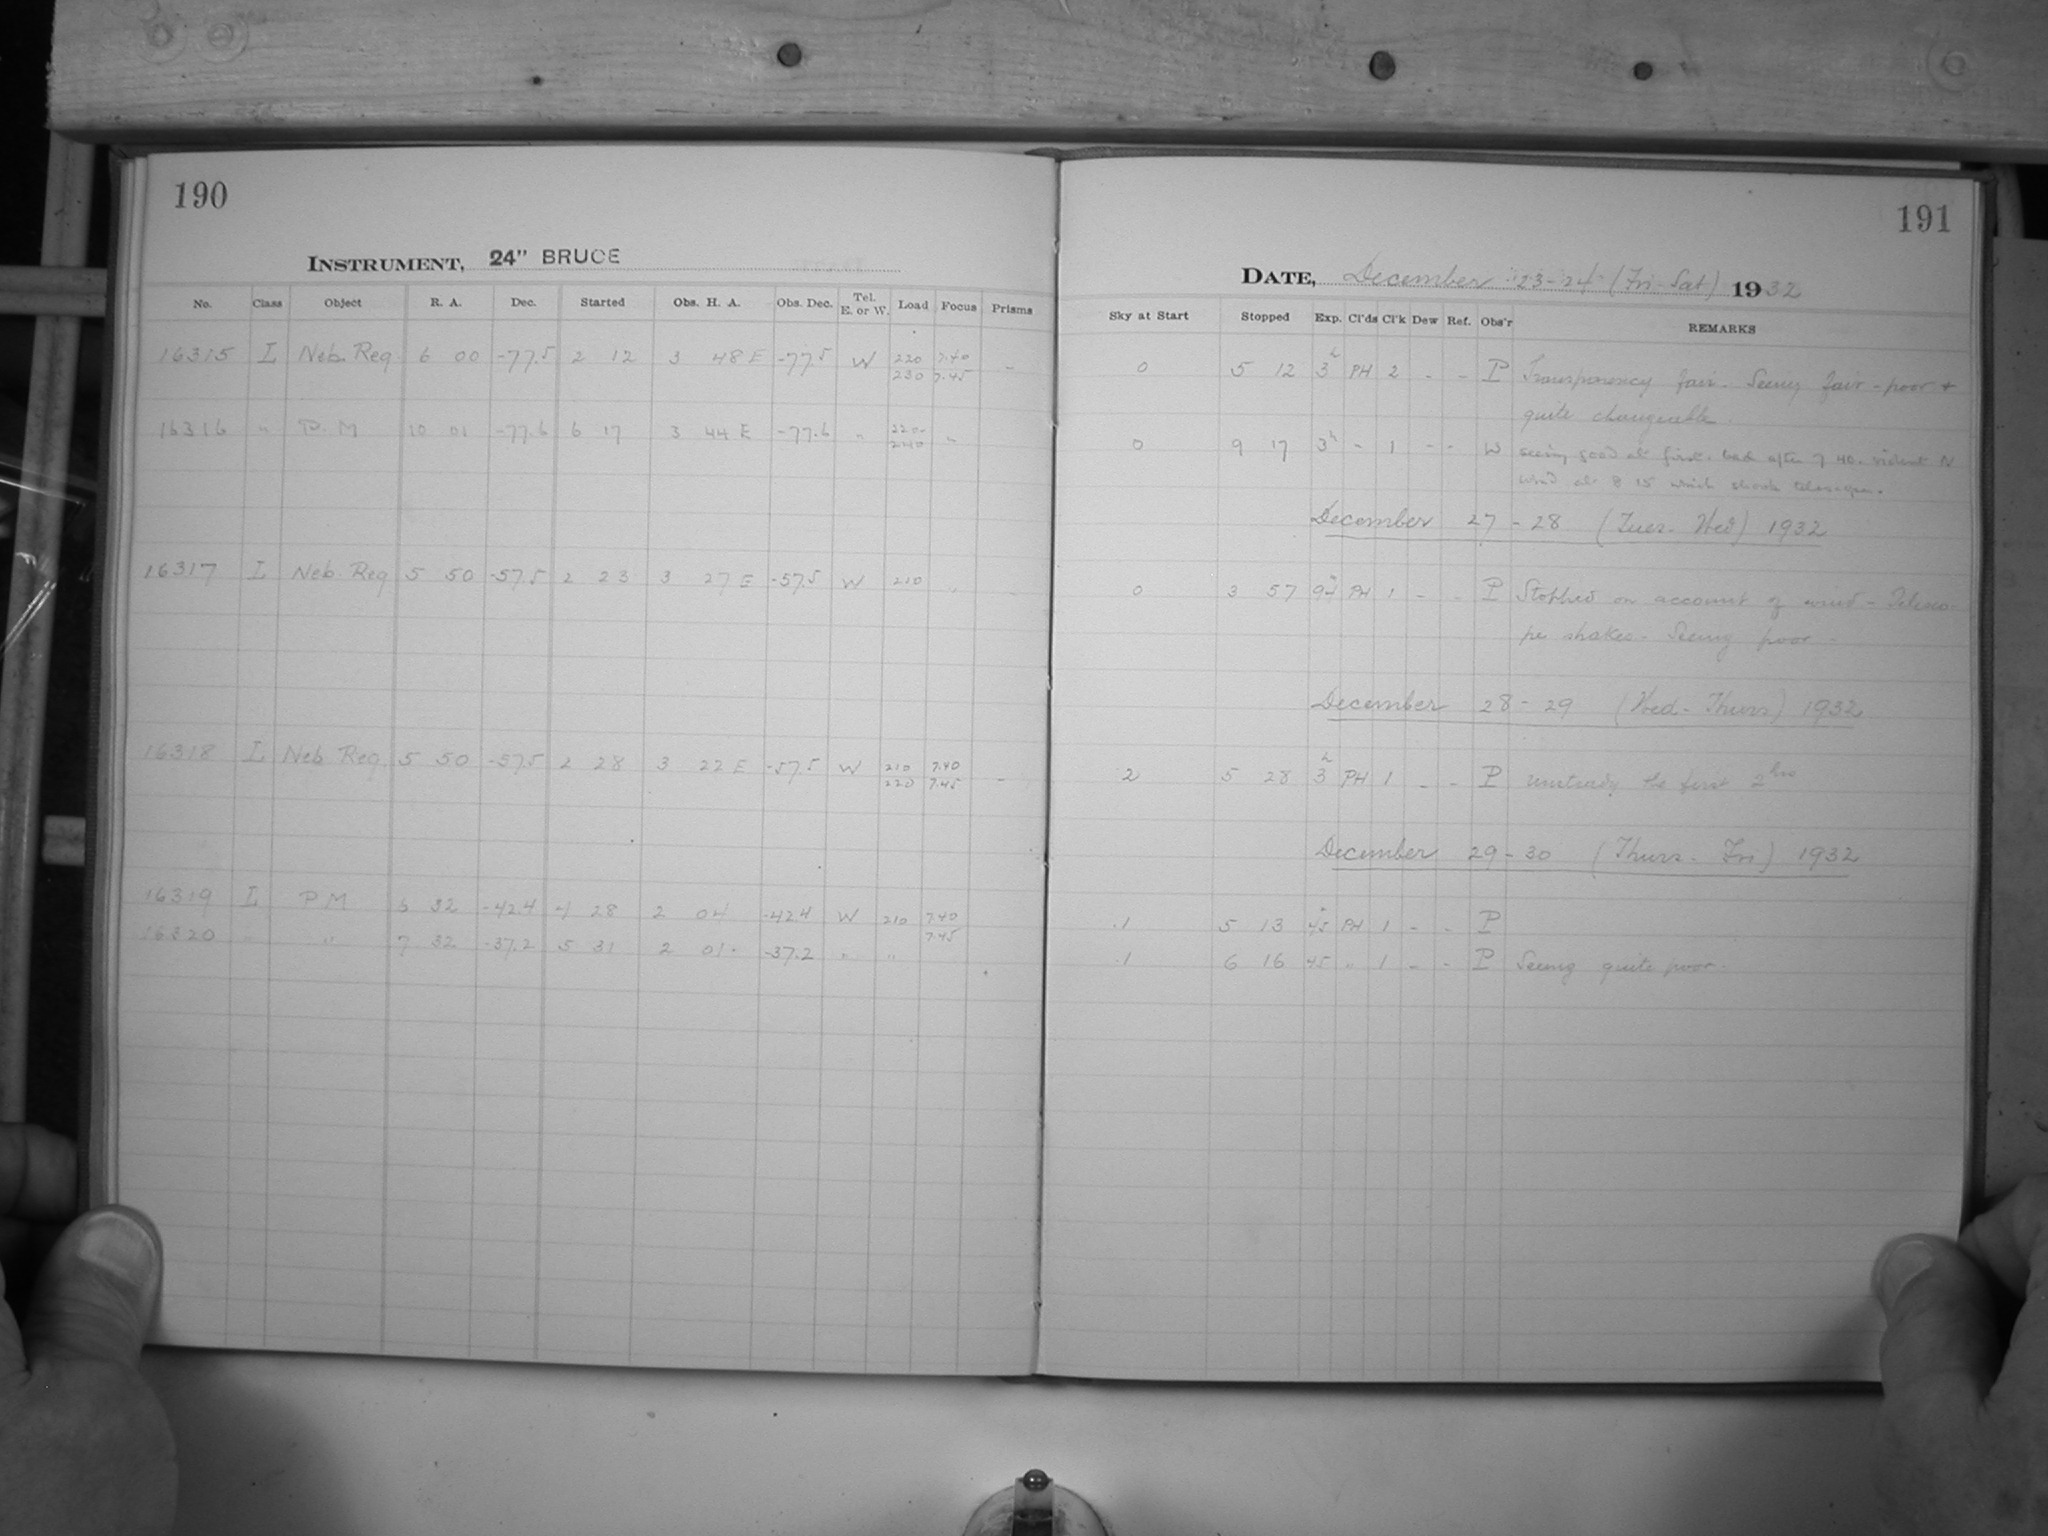 190
INSTRUMENT, 24" BRUCE
No. Class Object R. A. Dec. Started Obs. H. A. Obs. Dec. Tel. E. or W. Load Focus Prisms
16315 L Neb. Reg. 6 00 -77.5 2 12 3 48 E -77.5 W 220 7.40 -
230 7.45
16316 " P. M 10 01 -77.6 6 17 3 44 E -77.6 " 220 "
240
16317 L Neb. Reg 5 50 -57.5 2 23 3 27 E -57.5 W 210 "
16318 L Neb Reg. 5 50 -57.5 2 28 3 22 E -57.5 W 210 7.40 -
220 7.45
16319 L P M 6 32 -42.4 4 28 2 04 -42.4 W 210 7.40
7.45
16320 " 7 32 -37.2 5 31 2 01 -37.2 " "
191
DATE, December 23-24 (Fri-Sat) 1932
Sky at Start Stopped Exp. Cl'ds Cl'k Dew Ref. Obs'r REMARKS
0 5 12 3h PH 2 - - P Transparency fair. Seeing fair - poor +
quite changeable.
0 9 17 3h - 1 - - W seeing good at first. bad after 7 40. violent N
wind at 8 15 which shook telescope.
December 27 - 28 (Tues. Wed) 1932
0 3 57 94m PH 1 - - P Stopped on account of wind - Telesco-
pe shakes - Seeing poor -
December 28 - 29 (Wed - Thurs) 1932
2 5 28 3h PH 1 - - P unsteady the first 2 hrs
December 29 - 30 (Thurs. Fri) 1932
.1 5 13 45m PH 1 - - P
.1 6 16 45 " 1 - - P Seeing quite poor.